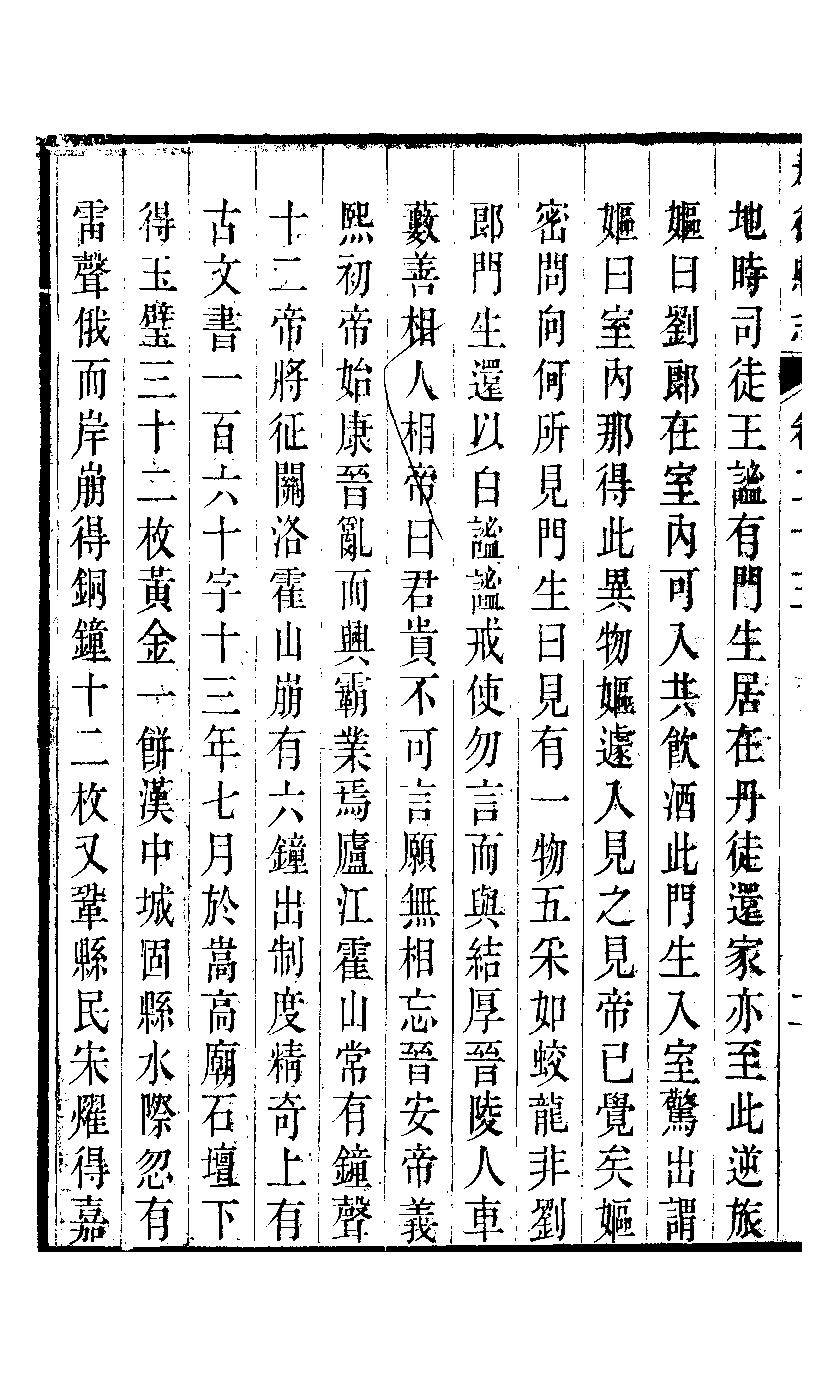 地時司徒王謐有門生居在丹徒還家亦至此逆旅
嫗曰劉郎在室內可入共飮酒此門生入室驚出謂
嫗曰室內那得此異物嫗遽入見之見帝已覺矣嫗
密問向何所見門生曰見有一物五采如蛟龍非劉
郎門生還以白謐謐戒使勿言而與結厚晉陵人車
藪善相人相帝曰君貴不可言願無相忘晉安帝義
熙初帝始康晉亂而興霸業焉廬江霍山常有鐘聲
十二帝將征關洛霍山崩有六鐘出制度精奇上有
古文書一百六十字十三年七月於嵩高廟石壇下
得玉璧三十二枚黃金一餅漢中城固縣水際忽有
雷聲俄而岸崩得銅鐘十二枚又鞏縣民宋燿得嘉